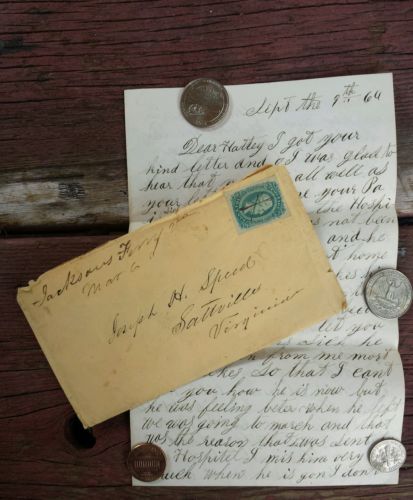 Sept the 9th 64
Dear Hattey I got your
kind letter and as I was glad to
hear that all well as
your your Pa
the Hospi
as not been
and he
t home
Jacksons Ferry Va
Mar 6
Joseph H. Speed
Saltville
Virginia
let you
sick he
from me most
ches. So that I cant
you how he is now but
he was feeling beter when he left
we was going to march and that
was the reason that was Sent
Hospital I miss him very
much when he is gon I don